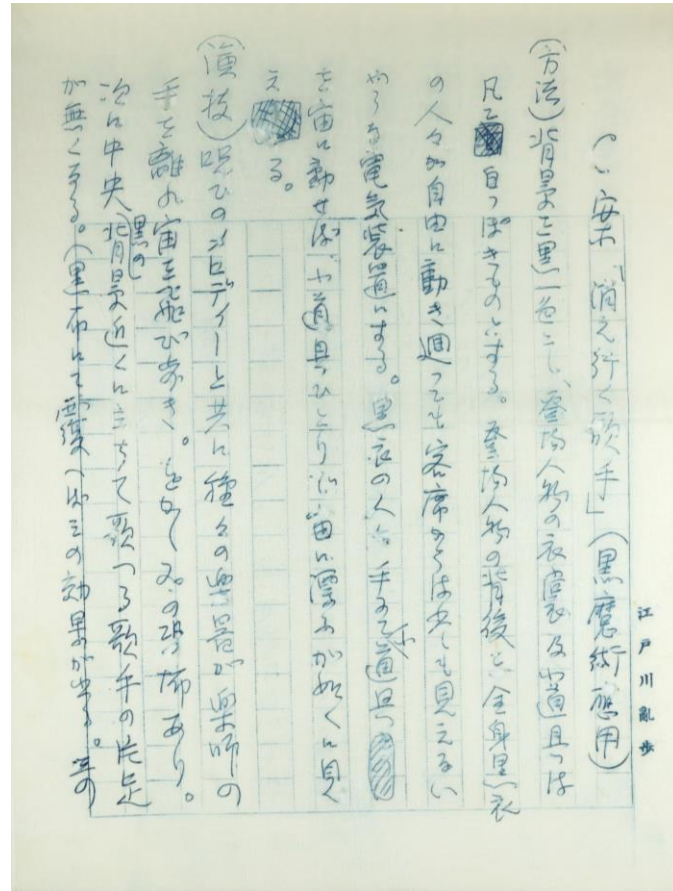 案「消え行く歌手」（黒魔術應用）
（方法）背景を黒一色とし、登場人物の衣裳及小道具は
凡て白っぽきものとする。登場人物の背後に全身黒衣
の人々が自由に動き廻っても客席からは少しも見えない
やうな電気装置にする。黒衣の人が手にて小道具
を宙に動せば、小道具ひとりで宙に漂ふが如くに見
える。
（演技）呪ひのメロディーと共に種々の楽器が楽師の
手を離れ宙を飛び歩き。をかしみの恐怖あり。
次に中央黒の背景近くに立ちて歌へる歌手の片足
が無くなる。（黒布にて覆へばこの効果が出る。
江戸川亂歩